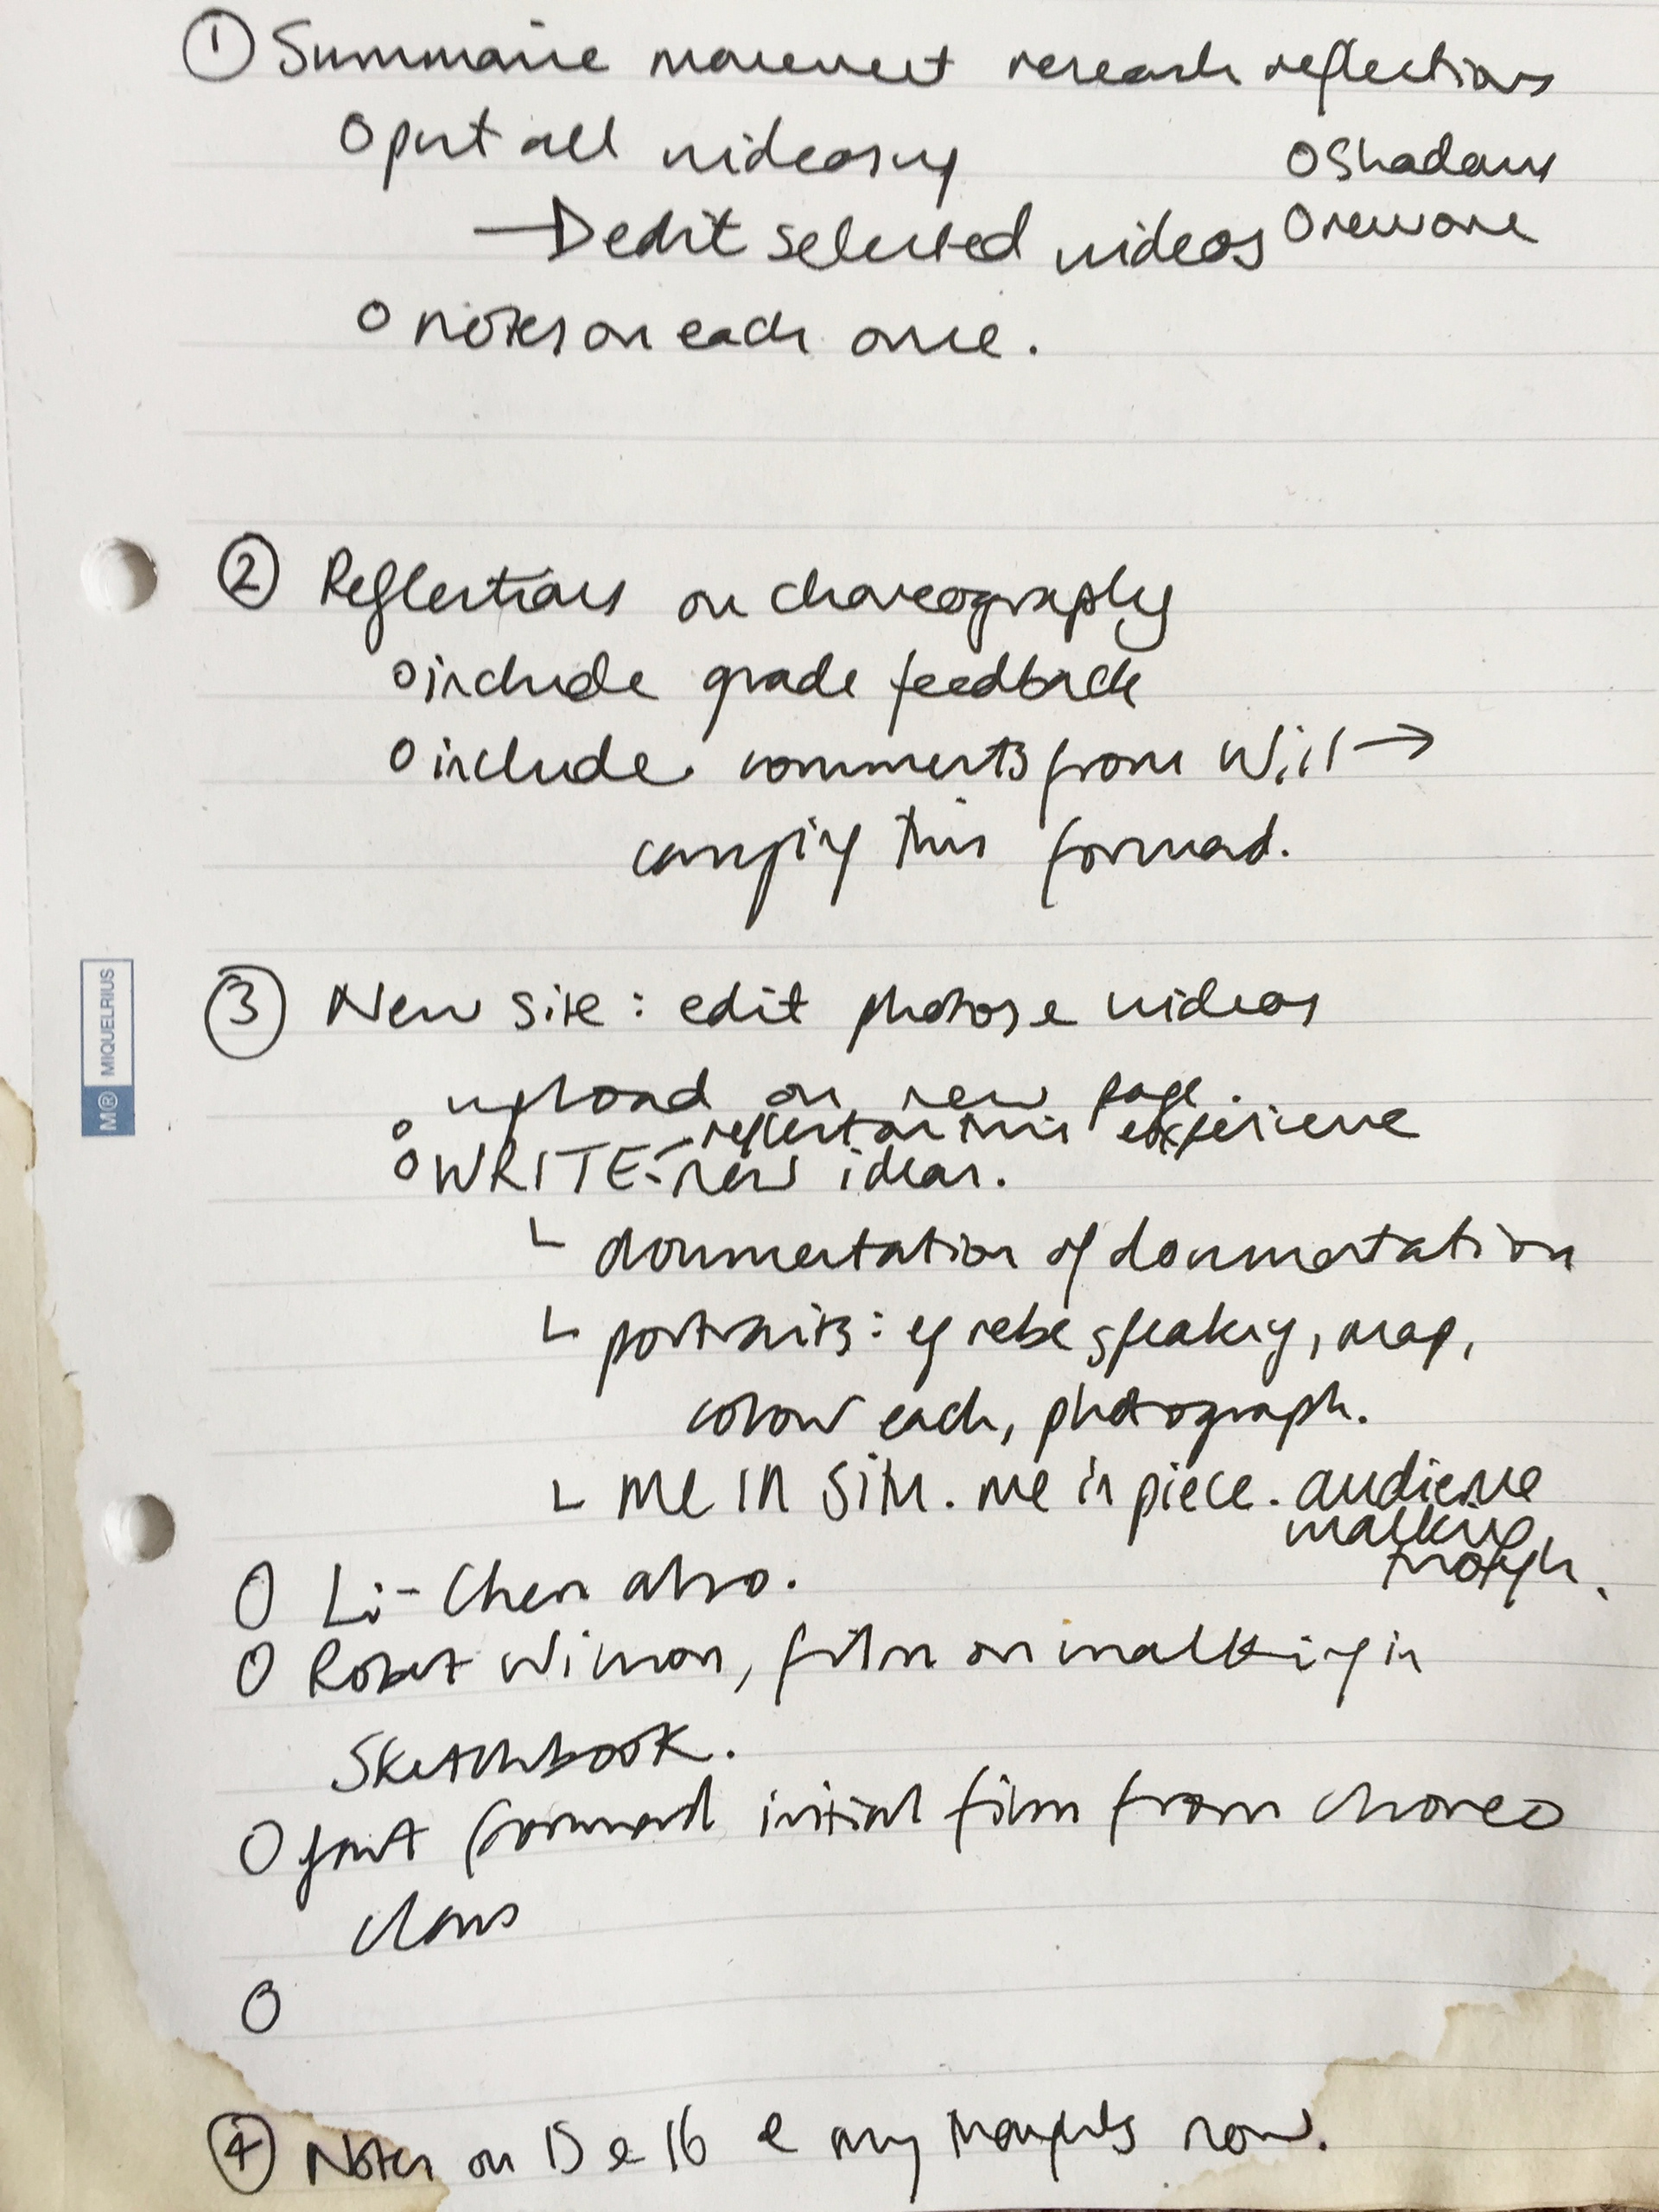 ① Summarise movement research reflections
o put all videos up
o Shadows
→ edit selected videos
o
o notes on each one.
② Reflections on choreography
o include grade feedback
o include comments from Will →
carrying this forward.
③ New site: edit photos e videos
upload on new page.
o
reflect on this experience
o WRITE: new ideas.
└ documentation of documentation
└ portraits: eg rebe speaking, map,
colour each, photograph.
└ me IN situ. me in piece. audience
walking
through.
O Li-Chen also.
O Robert Wilson, film on walking in
Sketchbook.
O fast forward initial film from choreo
class
O
④ Notes on 15 e 16 e my thoughts now.
M® MIQUELRIUS